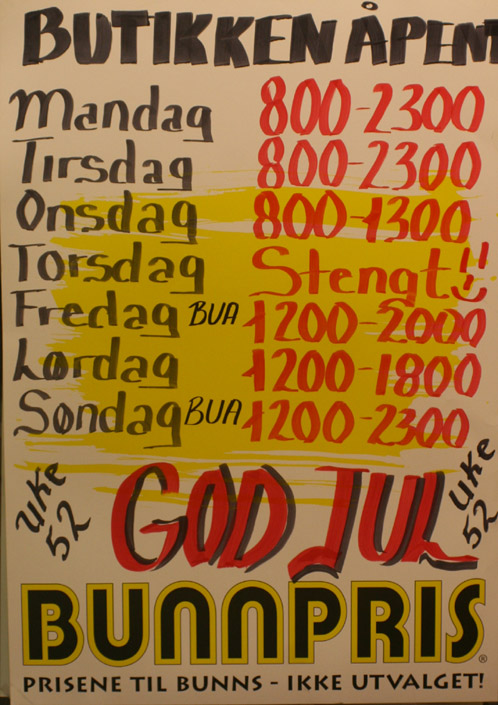 BUTIKKEN ÅPENT
Mandag 800-2300
Tirsdag 800-2300
Onsdag 800-1300
Torsdag Stengt!!
Fredag BUA 1200-2000
Lørdag 1200-1800
Søndag BUA 1200-2300
Uke 52 GOD JUL Uke 52
BUNNPRIS®
PRISENE TIL BUNNS - IKKE UTVALGET!